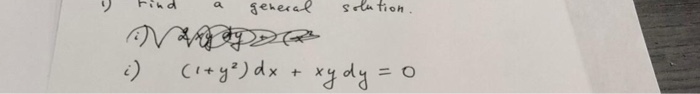 1) Find a general solution.
i) (1+y²)dx + xydy = 0